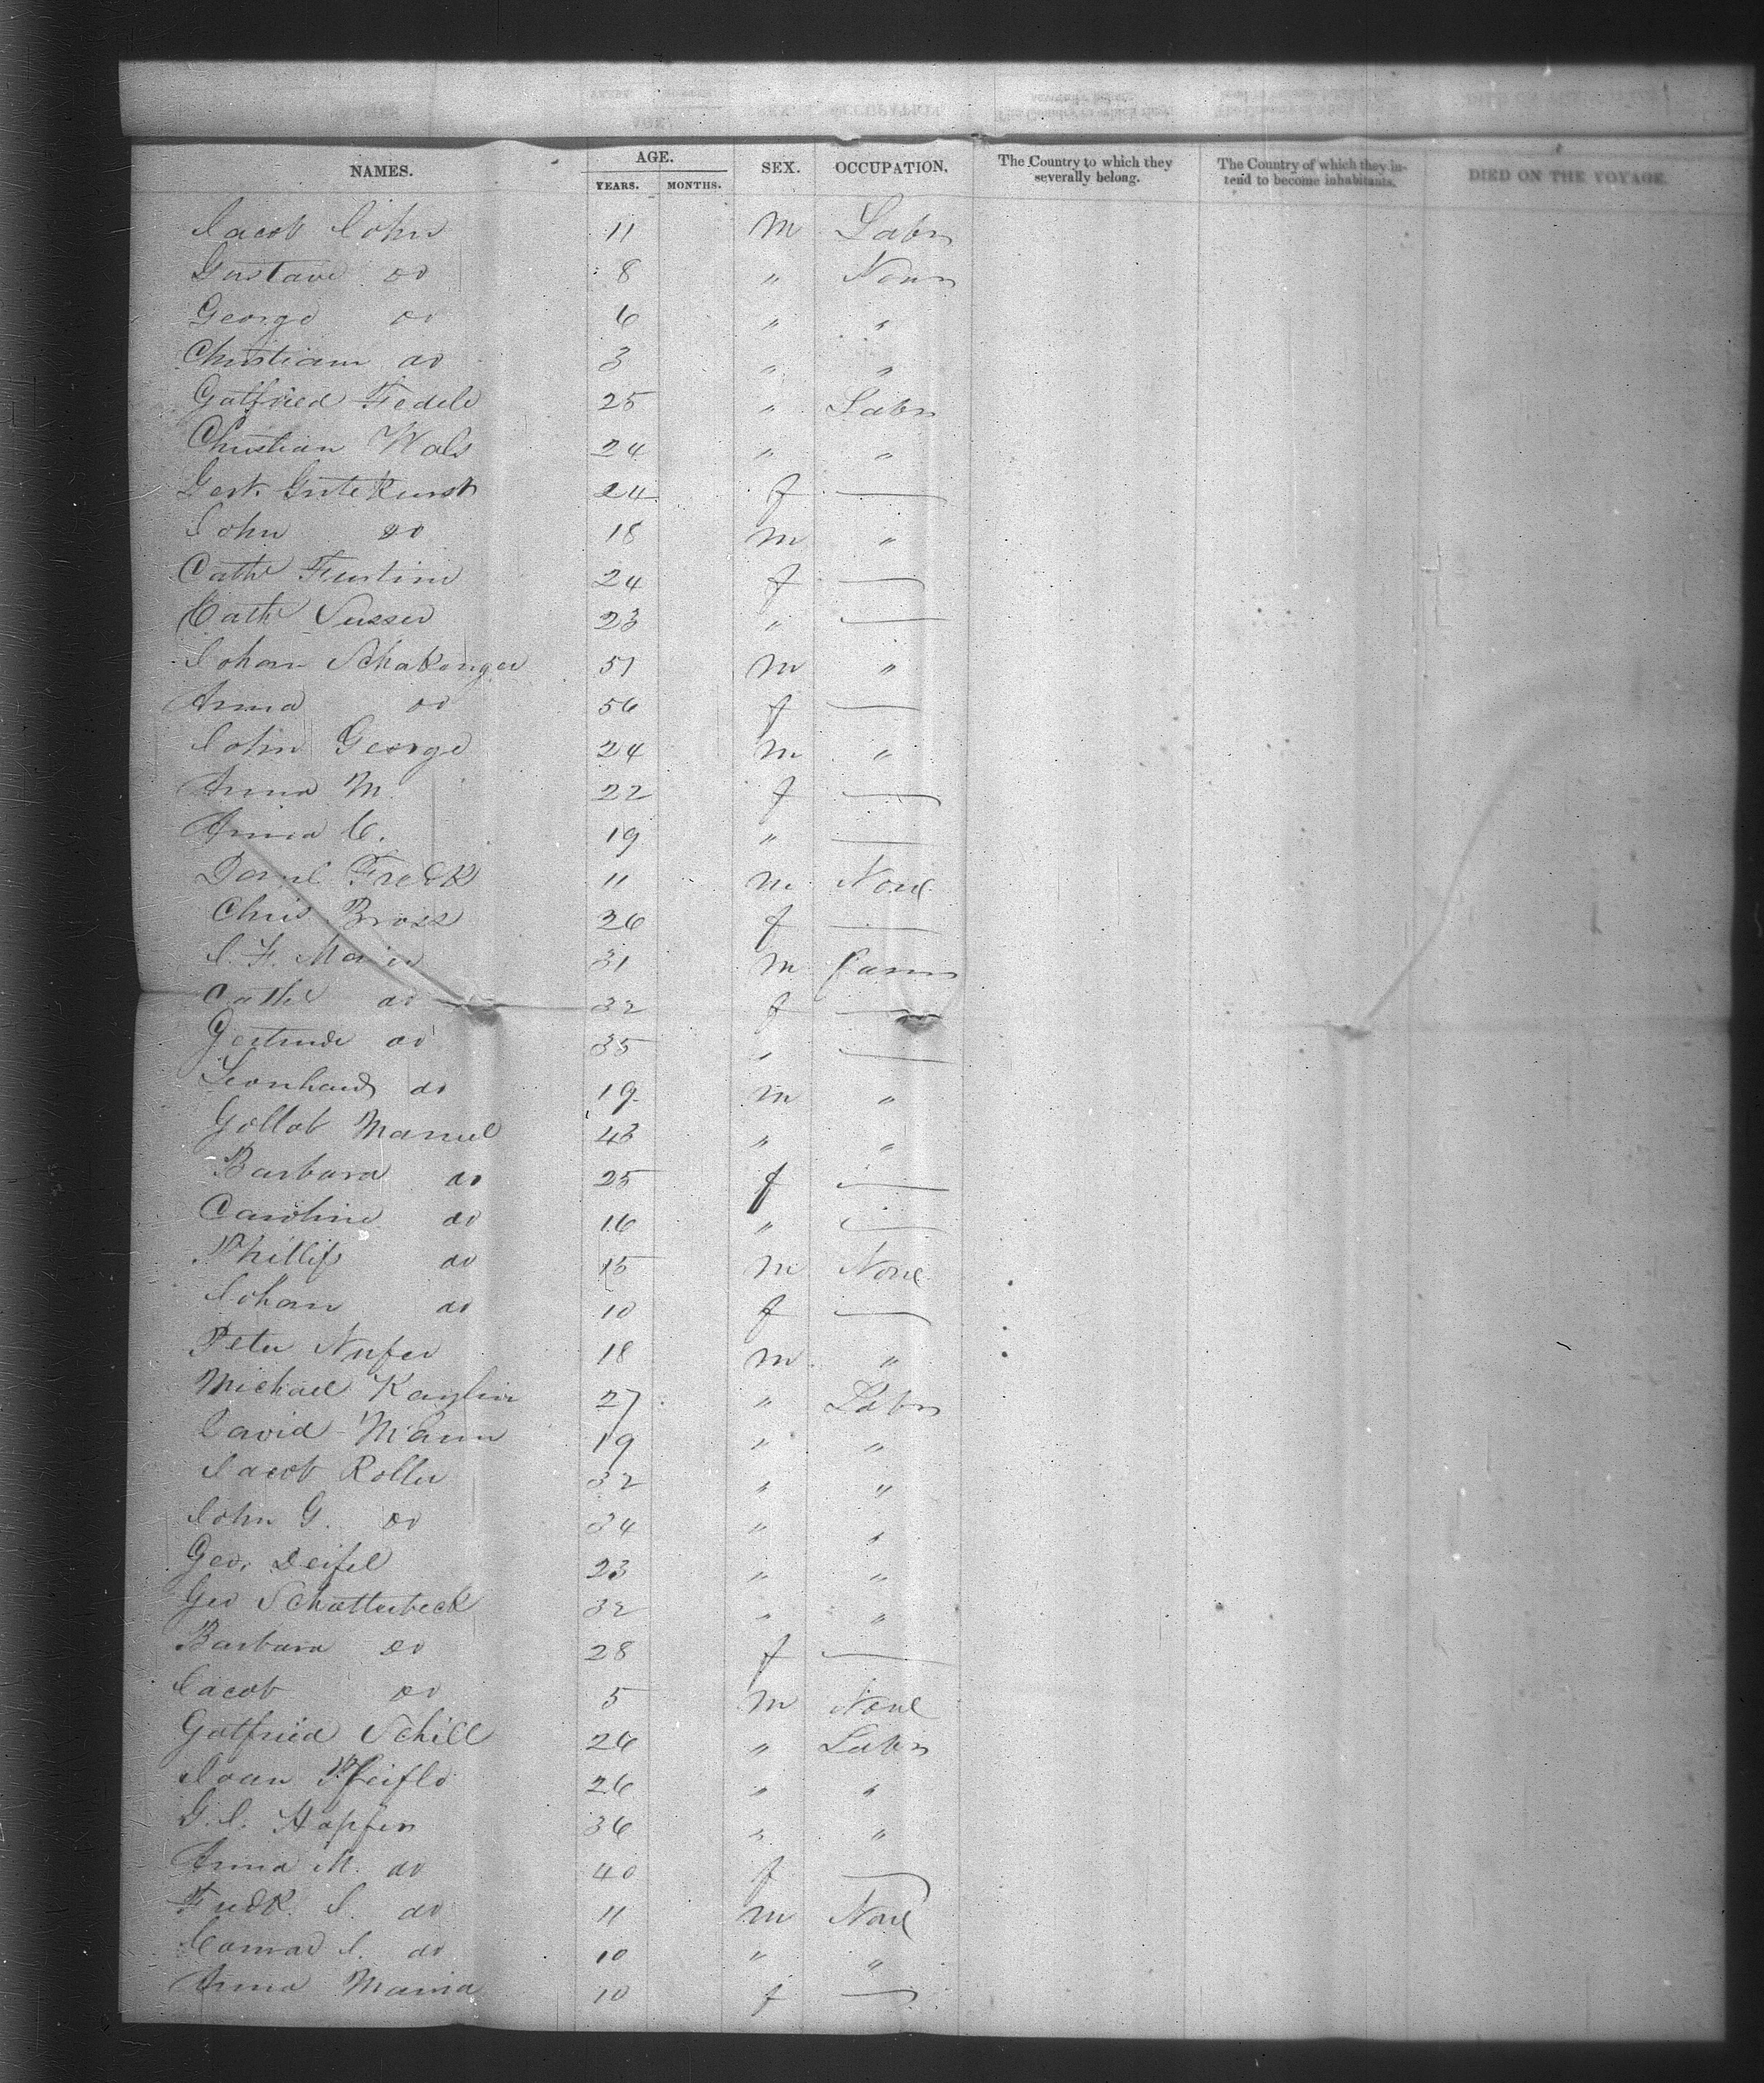 NAMES. AGE. YEARS. MONTHS. SEX. OCCUPATION. The Country to which they severally belong. The Country of which they intend to become inhabitants. DIED ON THE VOYAGE.
Jacob John 11 m Labr
Gustave do 8 " None
George do 6 " "
Christian do 3 " "
Gottfried Fedele 25 " Labr
Christian Wals 24 " "
Gert. Gutekunst 24 f —
John do 18 m "
Cath 24 f —
Cath Susser 23 " —
Johan Schakanger 51 m "
Anna do 56 f —
John George 24 m "
Anna M. 22 f —
Anna C. 19 " —
Daniel Fredk 11 m None
Chris Bross 26 f —
J. F. Maier 31 m
Cathe do 32 f —
Gertrude do 35 " —
Leonhard do 19 m "
Gottlob Manuel 43 " "
Barbara do 25 f —
Caroline do 16 " —
Phillip do 15 m None
Johan do 10 f —
Peter Nufer 18 m "
Michael 27 " Labr
David Mann 19 " "
Jacob Roller 32 " "
John G. do 34 " "
Geo. Deifel 23 " "
Geo Schatterbeck 32 " "
Barbara do 28 f —
Jacob do 5 m None
Gotfried Schill 26 " Labr
Joan Pfeifle 26 " "
G. J. Hopfer 36 " "
Anna M. do 40 f —
Fredk. J. do 11 m None
Conrad J. do 10 " "
Anna Maria 10 f —